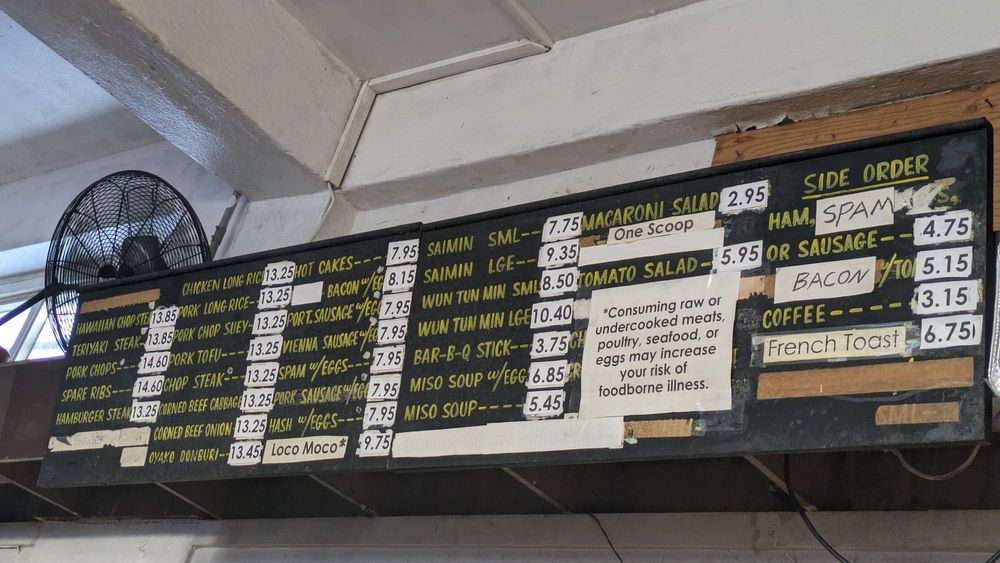 HAWAIIAN CHOP STE 13.85
TERIYAKI STEAK 13.85
PORK CHOPS- 14.60
SPARE RIBS-- 14.60
HAMBURGER STEAK 13.25
CHICKEN LONG RIC 13.25
PORK LONG-RICE- 13.25
PORK CHOP SUEY- 13.25
PORK TOFU---- 13.25
CHOP STEAK--- 13.25
CORNED BEEF CABBAG 13.25
CORNED BEEF ONION 13.25
OYAKO DONBURI-- 13.45
HOT CAKES--- 7.95
BACON w/EG 8.15
PORT. SAUSAGE w/EG 7.95
VIENNA SAUSAGE w/EG 7.95
SPAM w/EGGS--- 7.95
PORK SAUSAGE w/EGG 7.95
HASH w/EGGS--- 7.95
Loco Moco* 9.75
SAIMIN SML-- 7.75
SAIMIN LGE-- 9.35
WUN TUN MIN SML 8.50
WUN TUN MIN LGE 10.40
BAR-B-Q STICK-- 3.75
MISO SOUP w/EGG 6.85
MISO SOUP---- 5.45
MACARONI SALAD 2.95
One Scoop
TOMATO SALAD- 5.95
*Consuming raw or
undercooked meats,
poultry, seafood, or
eggs may increase
your risk of
foodborne illness.
SIDE ORDER
HAM, SPAM
OR SAUSAGE-- 4.75
BACON /TO 5.15
COFFEE---- 3.15
French Toast 6.75